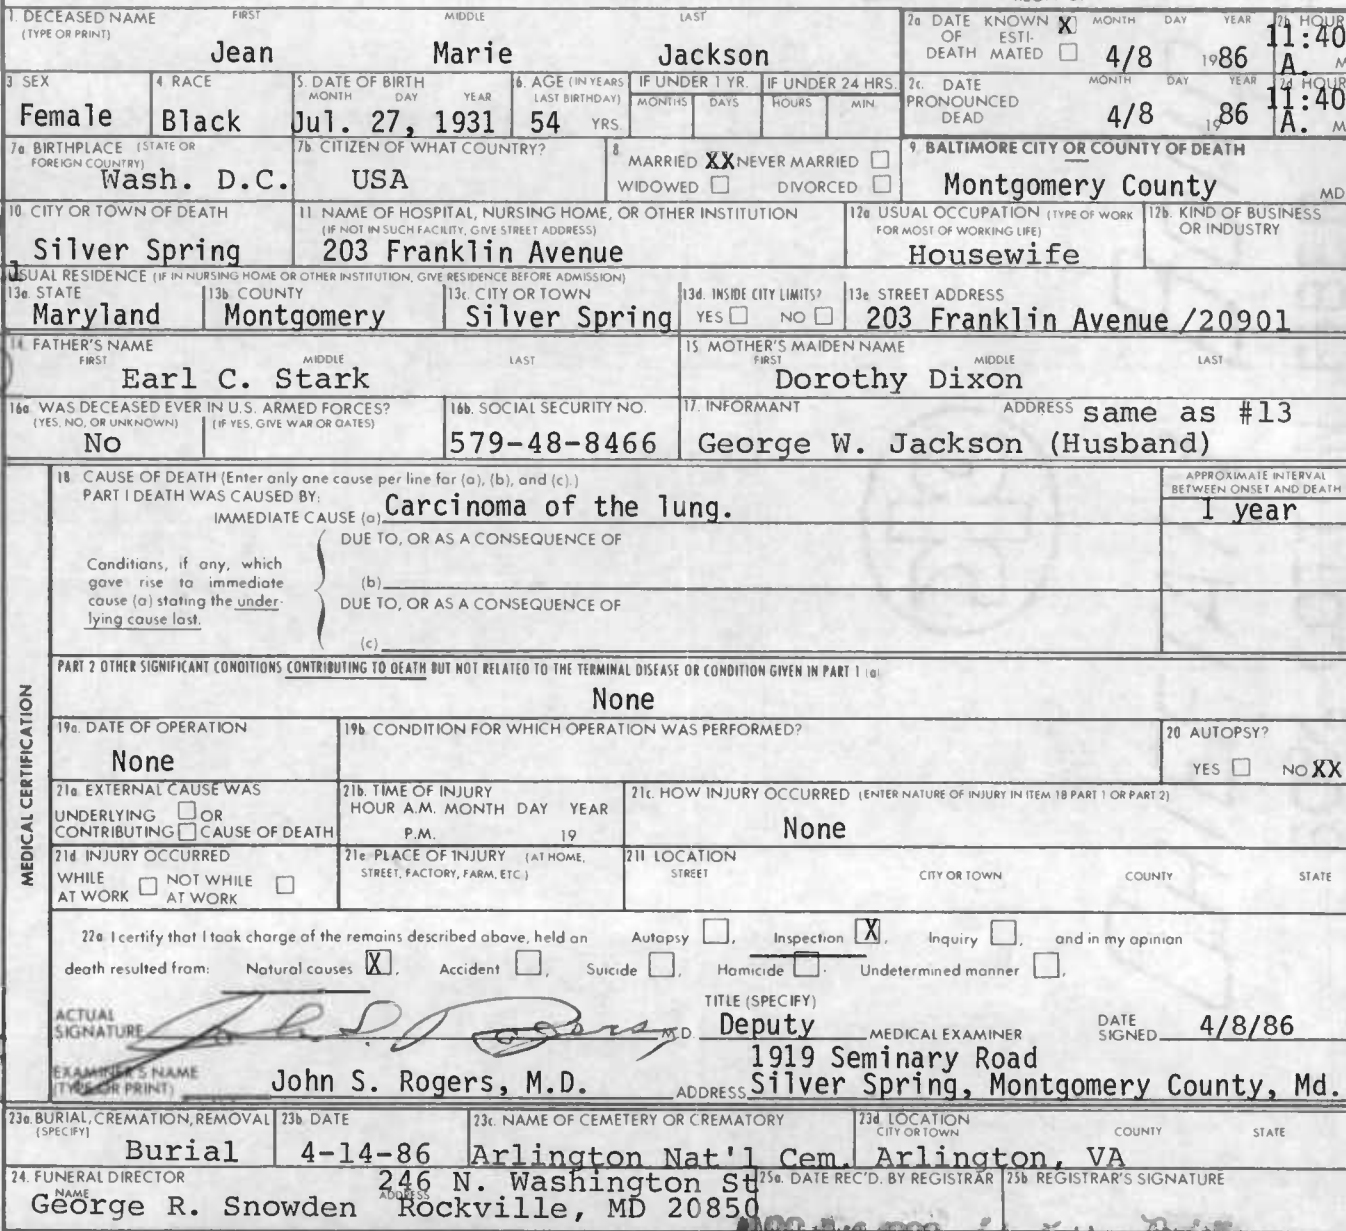 1. DECEASED NAME FIRST MIDDLE LAST
(TYPE OR PRINT)
Jean Marie Jackson
2a DATE KNOWN X MONTH DAY YEAR 2b HOUR
OF ESTI-
DEATH MATED 4/8 1986 11:40 A. M
3 SEX
Female
4 RACE
Black
5. DATE OF BIRTH
MONTH DAY YEAR
Jul. 27, 1931
6. AGE (IN YEARS
LAST BIRTHDAY)
54 YRS.
IF UNDER 1 YR. IF UNDER 24 HRS.
MONTHS DAYS HOURS MIN.
2c. DATE MONTH DAY YEAR 2d HOUR
PRONOUNCED
DEAD 4/8 1986 11:40 A. M
7a BIRTHPLACE (STATE OR
FOREIGN COUNTRY)
Wash. D.C.
7b CITIZEN OF WHAT COUNTRY?
USA
8
MARRIED XX NEVER MARRIED
WIDOWED DIVORCED
9. BALTIMORE CITY OR COUNTY OF DEATH
Montgomery County MD
10 CITY OR TOWN OF DEATH
Silver Spring
11 NAME OF HOSPITAL, NURSING HOME, OR OTHER INSTITUTION
(IF NOT IN SUCH FACILITY, GIVE STREET ADDRESS)
203 Franklin Avenue
12a USUAL OCCUPATION (TYPE OF WORK
FOR MOST OF WORKING LIFE)
Housewife
12b. KIND OF BUSINESS
OR INDUSTRY
USUAL RESIDENCE (IF IN NURSING HOME OR OTHER INSTITUTION, GIVE RESIDENCE BEFORE ADMISSION)
13a. STATE
Maryland
13b COUNTY
Montgomery
13c. CITY OR TOWN
Silver Spring
13d. INSIDE CITY LIMITS?
YES NO
13e STREET ADDRESS
203 Franklin Avenue /20901
14. FATHER'S NAME
FIRST MIDDLE LAST
Earl C. Stark
15 MOTHER'S MAIDEN NAME
FIRST MIDDLE LAST
Dorothy Dixon
16a WAS DECEASED EVER IN U.S. ARMED FORCES?
(YES, NO, OR UNKNOWN) (IF YES, GIVE WAR OR DATES)
No
16b. SOCIAL SECURITY NO.
579-48-8466
17. INFORMANT ADDRESS same as #13
George W. Jackson (Husband)
MEDICAL CERTIFICATION
18 CAUSE OF DEATH (Enter only one cause per line for (a), (b), and (c).)
PART I DEATH WAS CAUSED BY:
IMMEDIATE CAUSE (a) Carcinoma of the lung.
APPROXIMATE INTERVAL
BETWEEN ONSET AND DEATH
1 year
DUE TO, OR AS A CONSEQUENCE OF
Conditions, if any, which
gave rise to immediate
cause (a) stating the under-
lying cause last.
(b)
DUE TO, OR AS A CONSEQUENCE OF
(c)
PART 2 OTHER SIGNIFICANT CONDITIONS CONTRIBUTING TO DEATH BUT NOT RELATED TO THE TERMINAL DISEASE OR CONDITION GIVEN IN PART 1 (a)
None
19a. DATE OF OPERATION
None
19b. CONDITION FOR WHICH OPERATION WAS PERFORMED?
20 AUTOPSY?
YES NO XX
21a. EXTERNAL CAUSE WAS
UNDERLYING OR
CONTRIBUTING CAUSE OF DEATH
21b. TIME OF INJURY
HOUR A.M. MONTH DAY YEAR
P.M. 19
21c. HOW INJURY OCCURRED (ENTER NATURE OF INJURY IN ITEM 18 PART 1 OR PART 2)
None
21d INJURY OCCURRED
WHILE NOT WHILE
AT WORK AT WORK
21e PLACE OF INJURY (AT HOME,
STREET, FACTORY, FARM, ETC.)
21f LOCATION
STREET CITY OR TOWN COUNTY STATE
22a I certify that I took charge of the remains described above, held an Autopsy , Inspection X, Inquiry , and in my opinion
death resulted from: Natural causes X, Accident , Suicide , Homicide . Undetermined manner ,
ACTUAL
SIGNATURE John S. Rogers M.D.
TITLE (SPECIFY)
Deputy MEDICAL EXAMINER
DATE
SIGNED 4/8/86
EXAMINER'S NAME
(TYPE OR PRINT) John S. Rogers, M.D.
1919 Seminary Road
ADDRESS Silver Spring, Montgomery County, Md.
23a. BURIAL, CREMATION, REMOVAL
(SPECIFY)
Burial
23b DATE
4-14-86
23c. NAME OF CEMETERY OR CREMATORY
Arlington Nat'l Cem.
23d LOCATION
CITY OR TOWN COUNTY STATE
Arlington, VA
24. FUNERAL DIRECTOR
NAME ADDRESS
George R. Snowden
246 N. Washington St
Rockville, MD 20850
25a. DATE REC'D. BY REGISTRAR
25b REGISTRAR'S SIGNATURE